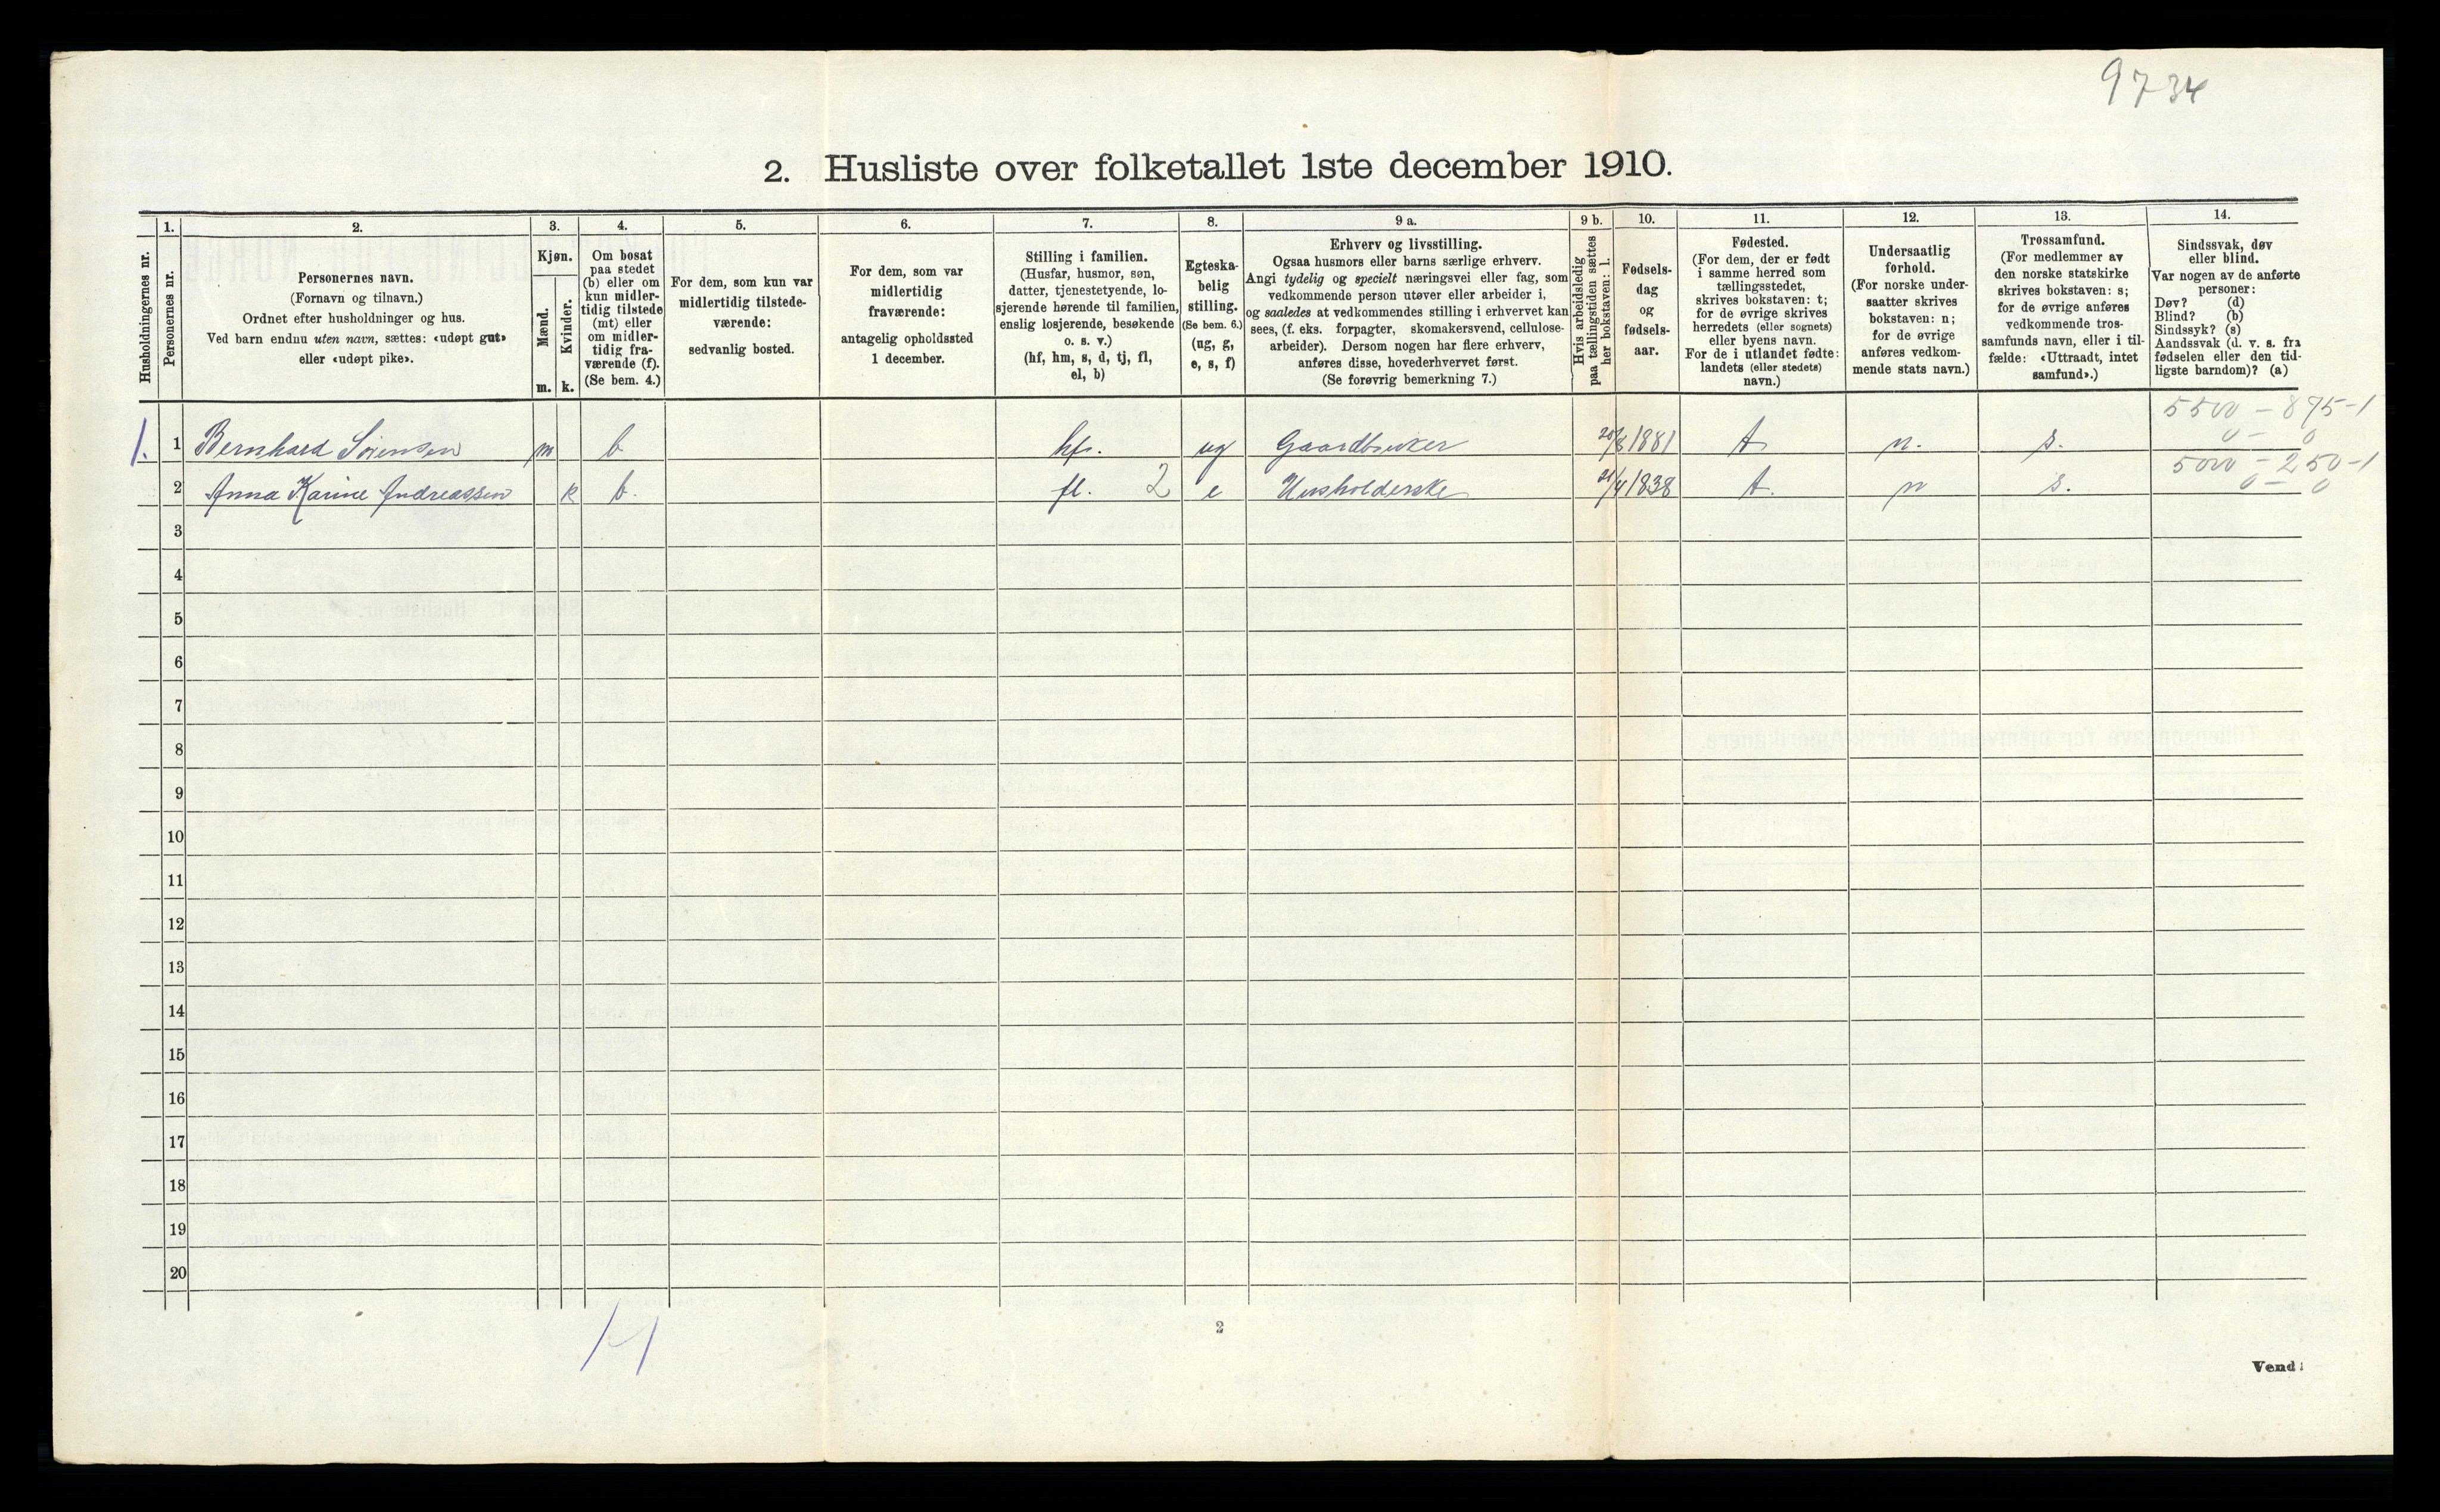 9734
2. Husliste over folketallet 1ste december 1910.
Husholdningernes nr.
1.
Personernes nr.
2.
Personernes navn.
(Fornavn og tilnavn.)
Ordnet efter husholdninger og hus.
Ved barn endnu uten navn, sættes: «udøpt gut»
eller «udøpt pike».
3.
Kjøn.
Mænd.
Kvinder.
m. k.
4.
Om bosat
paa stedet
(b) eller om
kun midler-
tidig tilstede
(mt) eller
om midler-
tidig fra-
værende (f).
(Se bem. 4.)
5.
For dem, som kun var
midlertidig tilstede-
værende:
sedvanlig bosted.
6.
For dem, som var
midlertidig
fraværende:
antagelig opholdssted
1 december.
7.
Stilling i familien.
(Husfar, husmor, søn,
datter, tjenestetyende, lo-
sjerende hørende til familien,
enslig losjerende, besøkende
o. s. v.)
(hf, hm, s, d, tj, fl,
el, b)
8.
Egteska-
belig
stilling.
(Se bem. 6.)
(ug, g,
e, s, f)
9 a.
Erhverv og livsstilling.
Ogsaa husmors eller barns særlige erhverv.
Angi tydelig og specielt næringsvei eller fag, som
vedkommende person utøver eller arbeider i,
og saaledes at vedkommendes stilling i erhvervet kan
sees, (f. eks. forpagter, skomakersvend, cellulose-
arbeider). Dersom nogen har flere erhverv,
anføres disse, hovederhvervet først.
(Se forøvrig bemerkning 7.)
9 b.
Hvis arbeidsledig
paa tællingstiden sættes
her bokstaven: l.
10.
Fødsels-
dag
og
fødsels-
aar.
11.
Fødested.
(For dem, der er født
i samme herred som
tællingsstedet,
skrives bokstaven: t;
for de øvrige skrives
herredets (eller sognets)
eller byens navn.
For de i utlandet fødte:
landets (eller stedets)
navn.)
12.
Undersaatlig
forhold.
(For norske under-
saatter skrives
bokstaven: n;
for de øvrige
anføres vedkom-
mende stats navn.)
13.
Trossamfund.
(For medlemmer av
den norske statskirke
skrives bokstaven: s;
for de øvrige anføres
vedkommende tros-
samfunds navn, eller i til-
fælde: «Uttraadt, intet
samfund».)
14.
Sindssvak, døv
eller blind.
Var nogen av de anførte
personer:
Døv? (d)
Blind? (b)
Sindssyk? (s)
Aandssvak (d. v. s. fra
fødselen eller den tid-
ligste barndom)? (a)
5500 - 875-1
0 - 0
1. 1 Bernhard Sørensen m b hf. ug Gaardbruker 20/8 1881 t n. s.
5000 - 250-1
0 - 0
2 Anna Karine Andreassen k b. fl. 2 e Husholderske 21/4 1838 t. n s.
3
4
5
6
7
8
9
10
11
12
13
14
15
16
17
18
19
20
2
Vend!